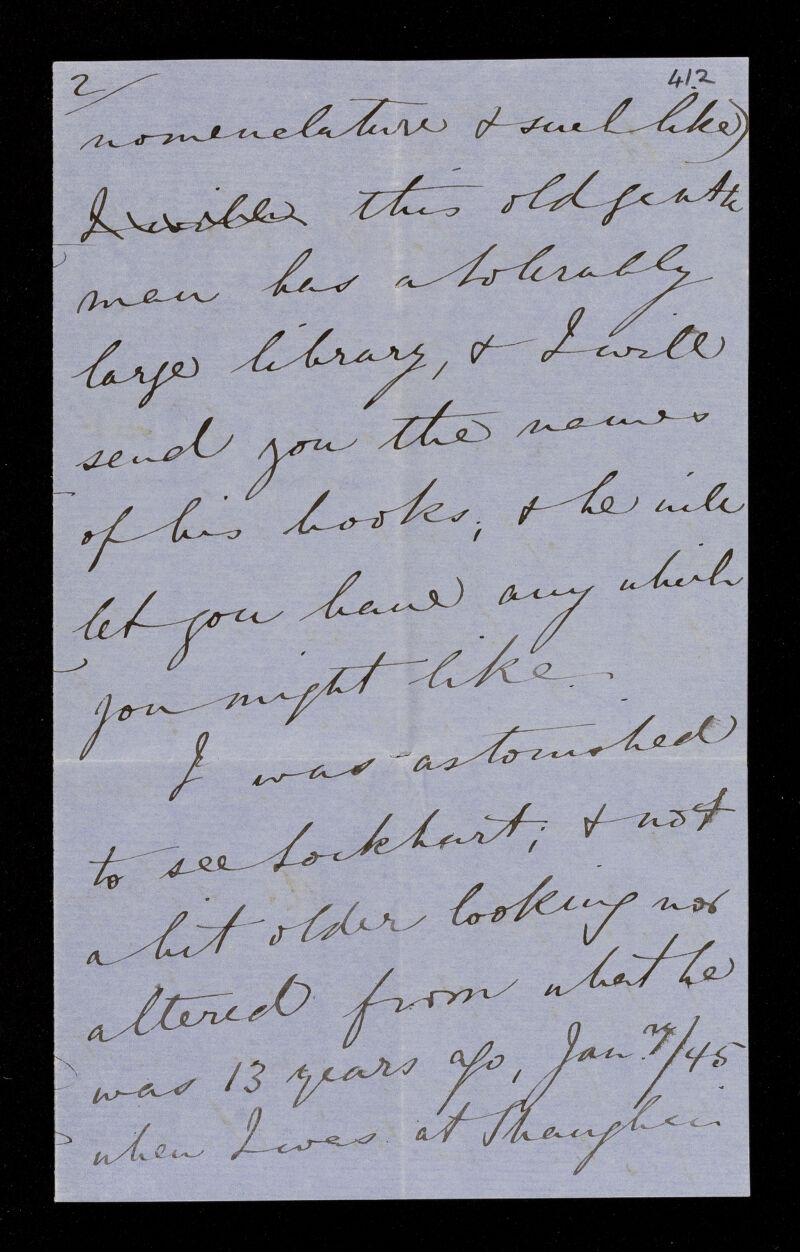 2/
412
nomenclature & such like)
I will this old gentle
man has a tolerably
large library, & I will
send you the names
of his books; & he will
let you have any which
you might like.
I was astonished
to see Lockhart; & not
a bit older looking nor
altered from what he
was 13 years ago, Jan.ry/45
when I was at Shanghai